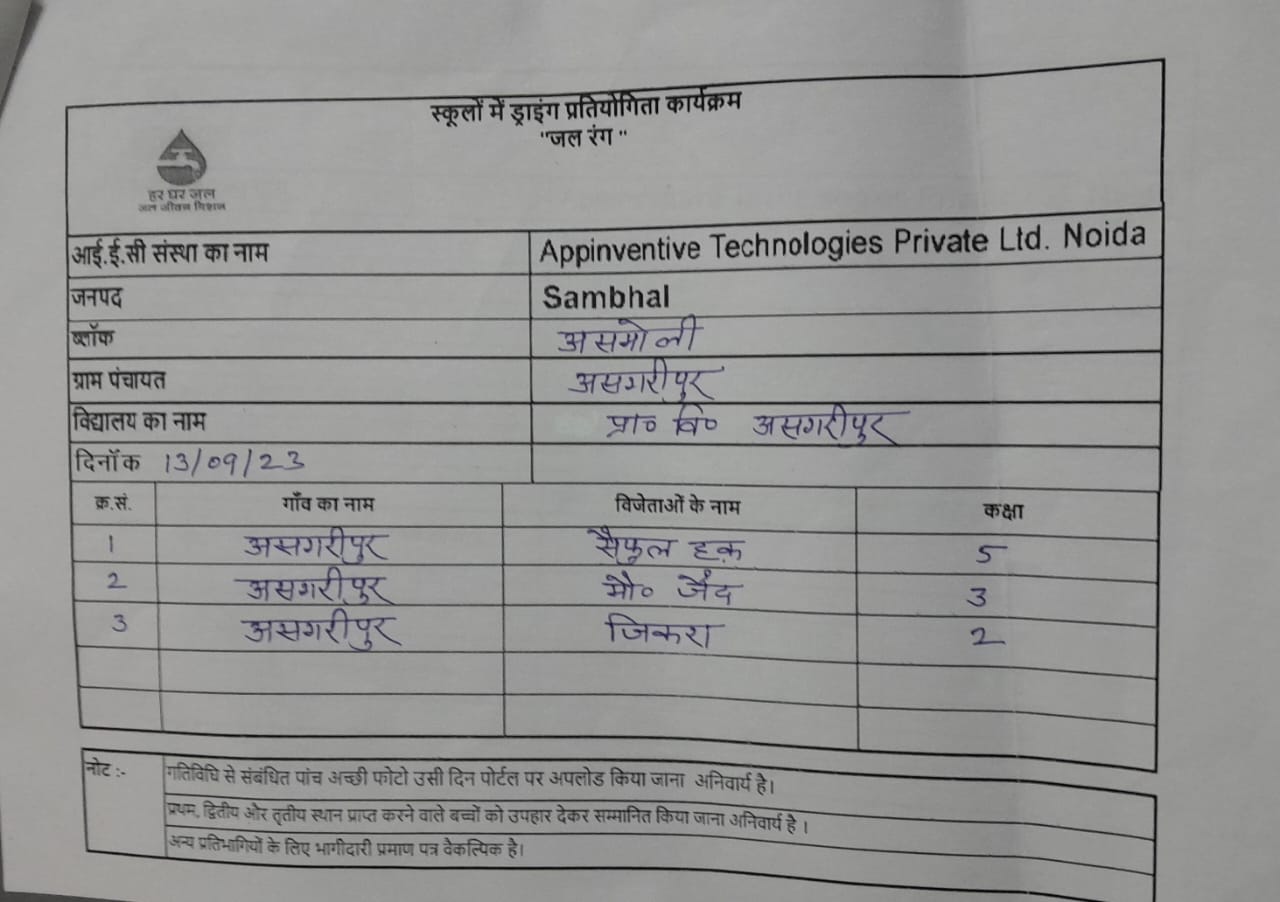 स्कूलों में ड्राइंग प्रतियोगिता कार्यक्रम
"जल रंग "
हर घर जल
जल जीवन मिशन
आई.ई.सी संस्था का नाम Appinventive Technologies Private Ltd. Noida
जनपद Sambhal
ब्लॉक असमोली
ग्राम पंचायत असगरीपुर
विद्यालय का नाम प्रा० वि० असगरीपुर
दिनॉक 13/09/23
क्र.सं. गाँव का नाम विजेताओं के नाम कक्षा
1 असगरीपुर सैफुल हक़ 5
2 असगरीपुर मौ० जैद 3
3 असगरीपुर जिकरा 2
नोट :- गतिविधि से संबंधित पांच अच्छी फोटो उसी दिन पोर्टल पर अपलोड किया जाना अनिवार्य है।
प्रथम, द्वितीय और तृतीय स्थान प्राप्त करने वाले बच्चों को उपहार देकर सम्मानित किया जाना अनिवार्य है ।
अन्य प्रतिभागियों के लिए भागीदारी प्रमाण पत्र वैकल्पिक है।